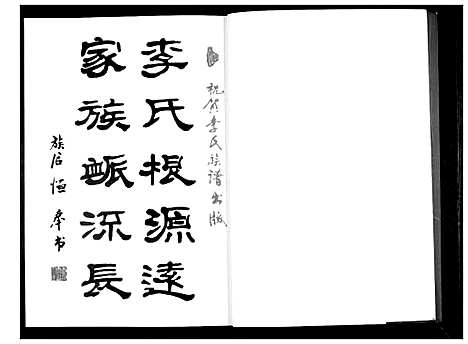 祝贺李氏族谱出版
李氏根源遠
家族脈流長
族后恒奉书